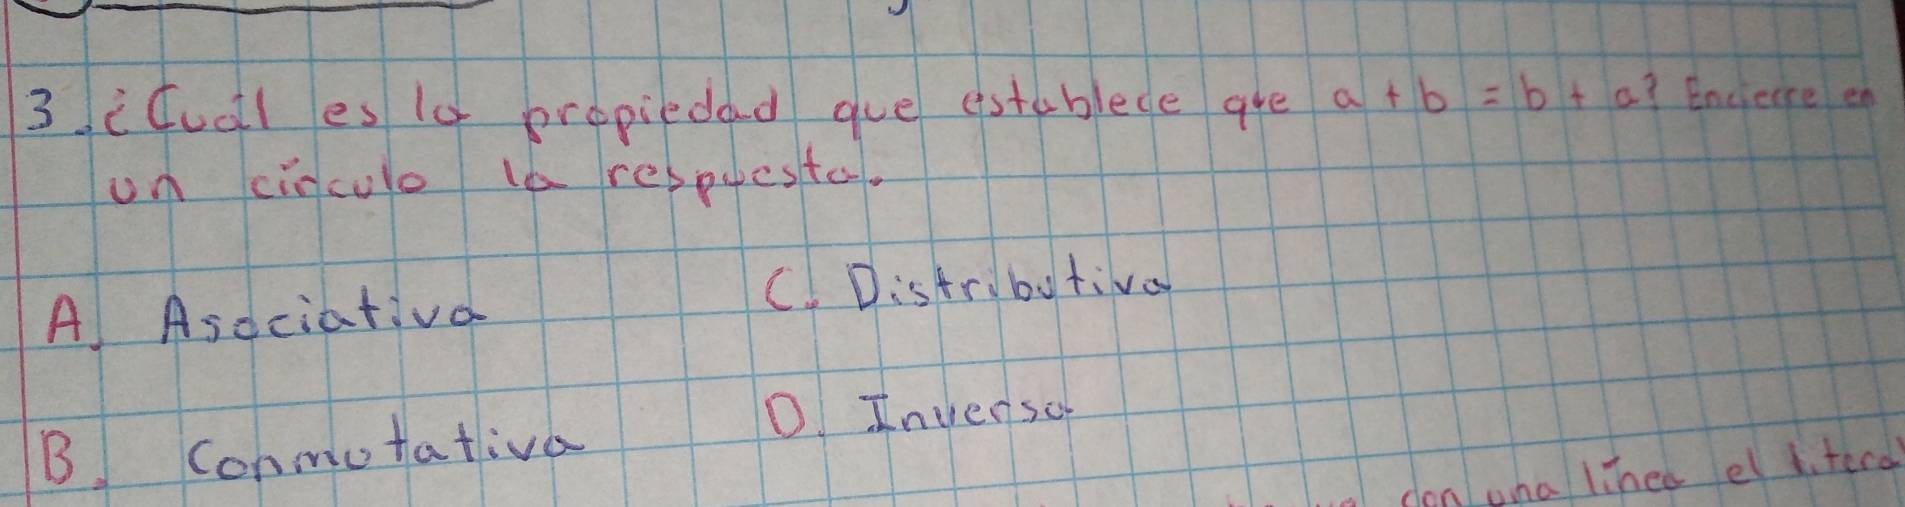 3. ¿Cuál es la propiedad que establece que a + b = b + a? Encierre en
un círculo la respuesta.
A. Asociativa
C. Distributiva
B. Conmutativa
D. Inversa
con una línea el litera